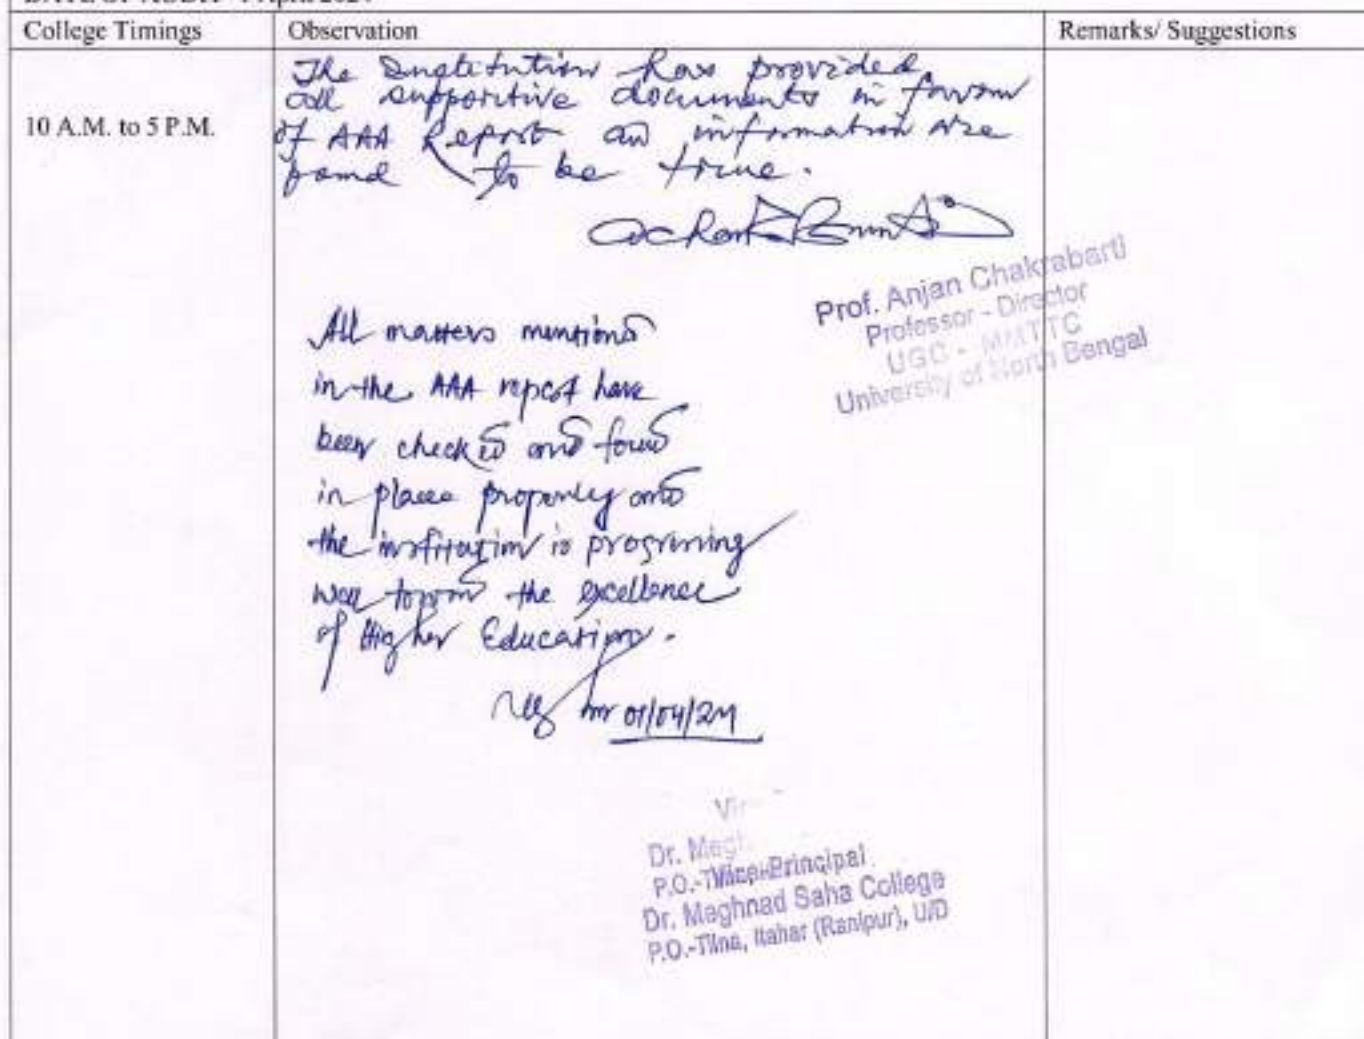 College Timings
Observation
Remarks/ Suggestions
10 A.M. to 5 P.M.
The Institution has provided
all supportive documents in favour
of AAA Report and information are
found to be true.
Prof. Anjan Chakrabarti
Professor - Director
UGC - MMTTC
University of North Bengal
All matters mentioned
in the AAA report have
been checked and found
in places properly and
the institution is progressing
well toward the excellence
of Higher Education.
01/04/24
Dr. Megh
P.O.-T Vice-Principal
Dr. Meghnad Saha College
P.O.-Tilna, Itahar (Ranipur), U/D